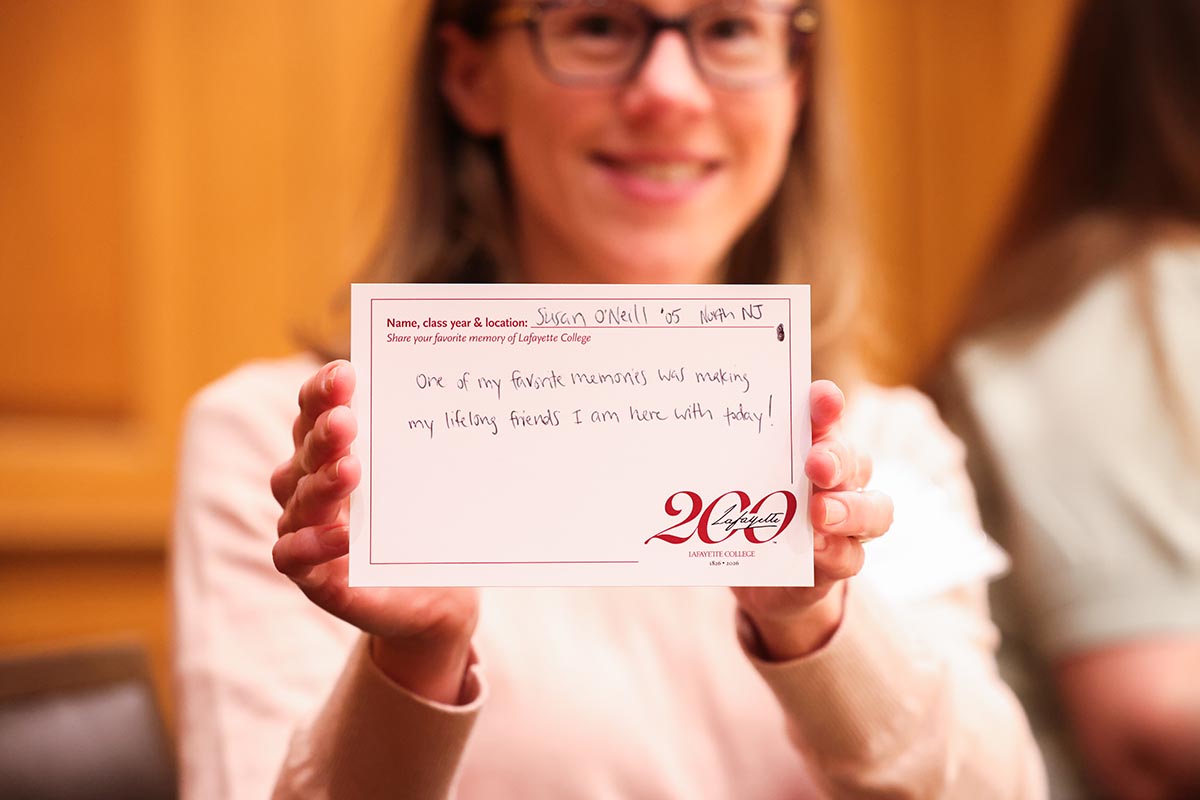 Name, class year & location: Susan O'Neill '05 North NJ
Share your favorite memory of Lafayette College
One of my favorite memories was making
my lifelong friends I am here with today!
200
Lafayette
LAFAYETTE COLLEGE
1826 • 2026